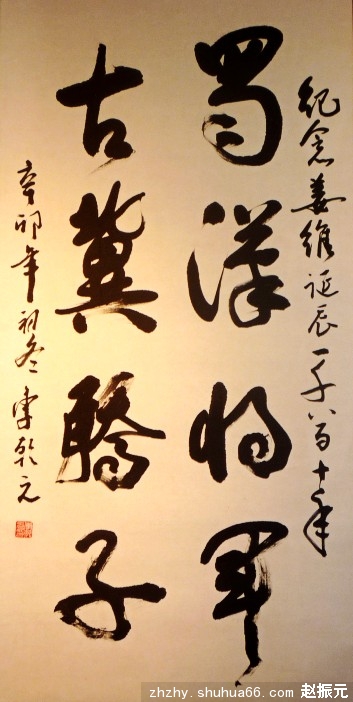 紀念姜維誕辰一千八百十年
蜀漢将軍
古冀驕子
辛卯年初冬 李乾元
zhzhy.shuhua66.com 赵振元